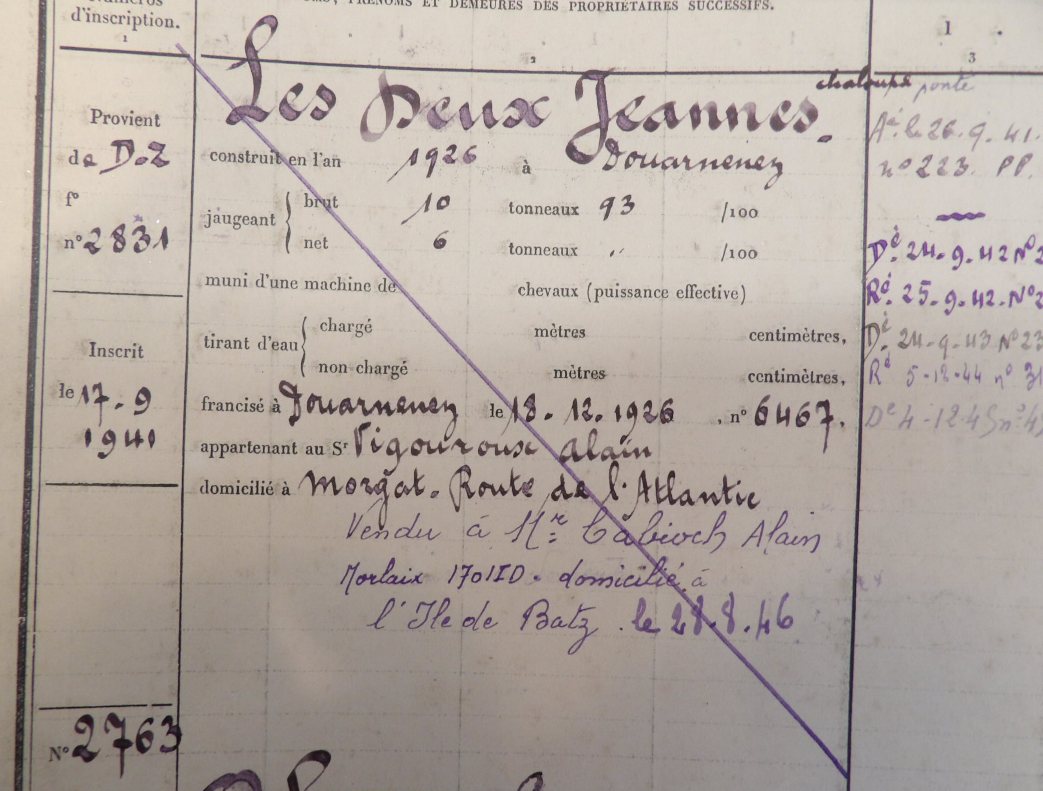 Numéros
d'inscription.
1
NOMS, PRÉNOMS ET DEMEURES DES PROPRIÉTAIRES SUCCESSIFS.
2
1
3
Provient
de D.Z
f°
n° 2831
Inscrit
le 17-9
1941
N° 2763
Les Deux Jeannes.
chaloupe pontée
construit en l'an 1926 à Douarnenez
jaugeant { brut 10 tonneaux 93 /100
net 6 tonneaux " /100
muni d'une machine de chevaux (puissance effective)
tirant d'eau { chargé mètres centimètres,
non chargé mètres centimètres,
francisé à Douarnenez le 18.12.1926, n° 6467.
appartenant au Sr Vigouroux Alain
domicilié à Morgat. Route de l'Atlantic
Vendu à Mr Cabioch Alain
Morlaix 1701ID. domicilié à
l'Ile de Batz. le 28.8.46
Aé. le 26.9.41.
n° 223. PP.
Dé. 24.9.42 N° 2
Ré. 25.9.42. N° 2
Dé. 24.9.43 N° 23
Ré 5-12-44 n° 31
Dé 4-12-45 n°